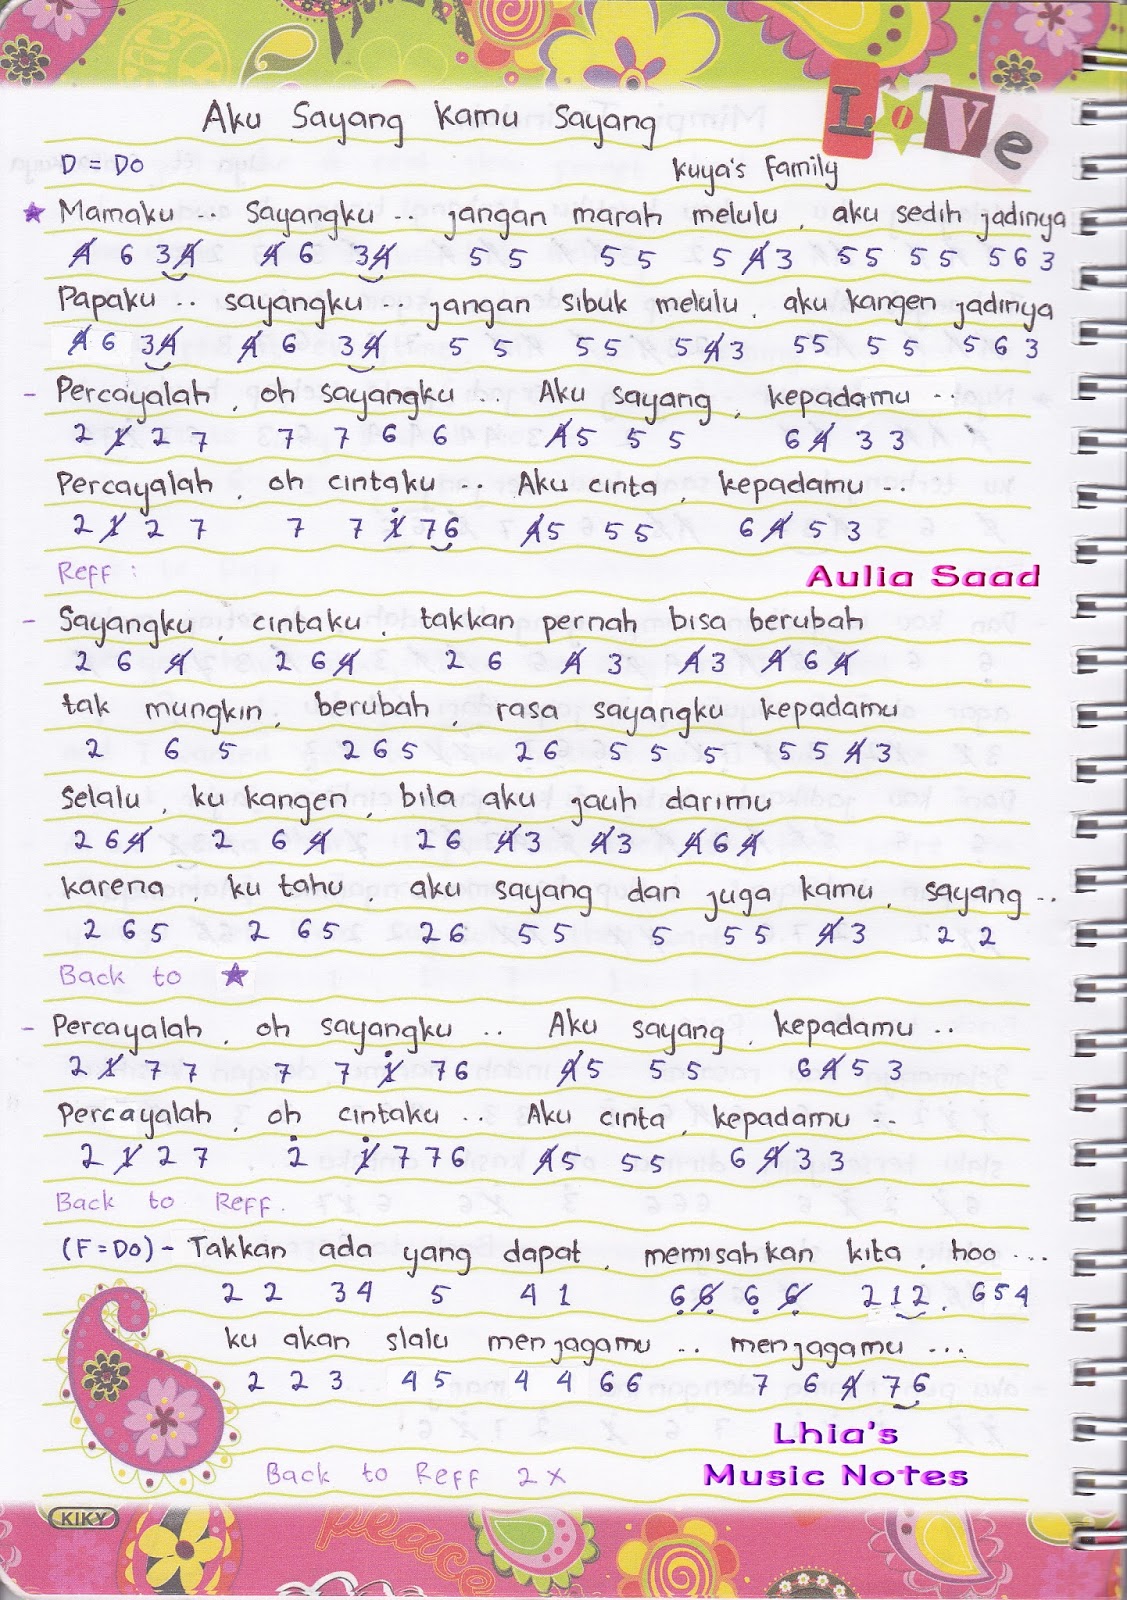 Love
Aku Sayang Kamu Sayang
D = Do
Kuya's Family
★ Mamaku .. Sayangku .. jangan marah melulu, aku sedih jadinya
4̸ 6 3 4̸ 4̸ 6 3 4̸ 5 5 5 5 5 4̸ 3 5 5 5 5 5 6 3
Papaku .. sayangku .. jangan sibuk melulu, aku kangen jadinya
4̸ 6 3 4̸ 4̸ 6 3 4̸ 5 5 5 5 5 4̸ 3 5 5 5 5 5 6 3
- Percayalah, oh sayangku .. Aku sayang, kepadamu ..
2 1̸ 2 7 7 7 6 6 4̸ 5 5 5 6 4̸ 3 3
Percayalah, oh cintaku .. Aku cinta, kepadamu ..
2 1̸ 2 7 7 7 1̸̇ 7 6 4̸ 5 5 5 6 4̸ 5 3
Reff :
Aulia Saad
- Sayangku, cintaku, takkan pernah bisa berubah
2 6 4̸ 2 6 4̸ 2 6 4̸ 3 4̸ 3 4̸ 6 4̸
tak mungkin, berubah, rasa sayangku kepadamu
2 6 5 2 6 5 2 6 5 5 5 5 5 4̸ 3
Selalu, ku kangen, bila aku jauh darimu
2 6 4̸ 2 6 4̸ 2 6 4̸ 3 4̸ 3 4̸ 6 4̸
karena, ku tahu, aku sayang dan juga kamu, sayang ..
2 6 5 2 6 5 2 6 5 5 5 5 5 4̸ 3 2 2
Back to ★
- Percayalah, oh sayangku .. Aku sayang, kepadamu ..
2 1̸ 7 7 7 7 1̸̇ 7 6 4̸ 5 5 5 6 4̸ 5 3
Percayalah, oh cintaku .. Aku cinta, kepadamu ..
2 1̸ 2 7 2̇ 1̸̇ 7 7 6 4̸ 5 5 5 6 4̸ 3 3
Back to Reff.
(F = Do) - Takkan ada yang dapat, memisahkan kita, hoo ...
2 2 3 4 5 4 1 6̣ 6̸̣ 6̣ 6̸̣ 2 1 2 . 6 5 4
ku akan slalu menjagamu .. menjagamu ...
2 2 3 4 5 4 4 6 6 7 6 4̸ 7 6
Lhia's
Back to Reff 2 x
Music Notes
KIKY
peace